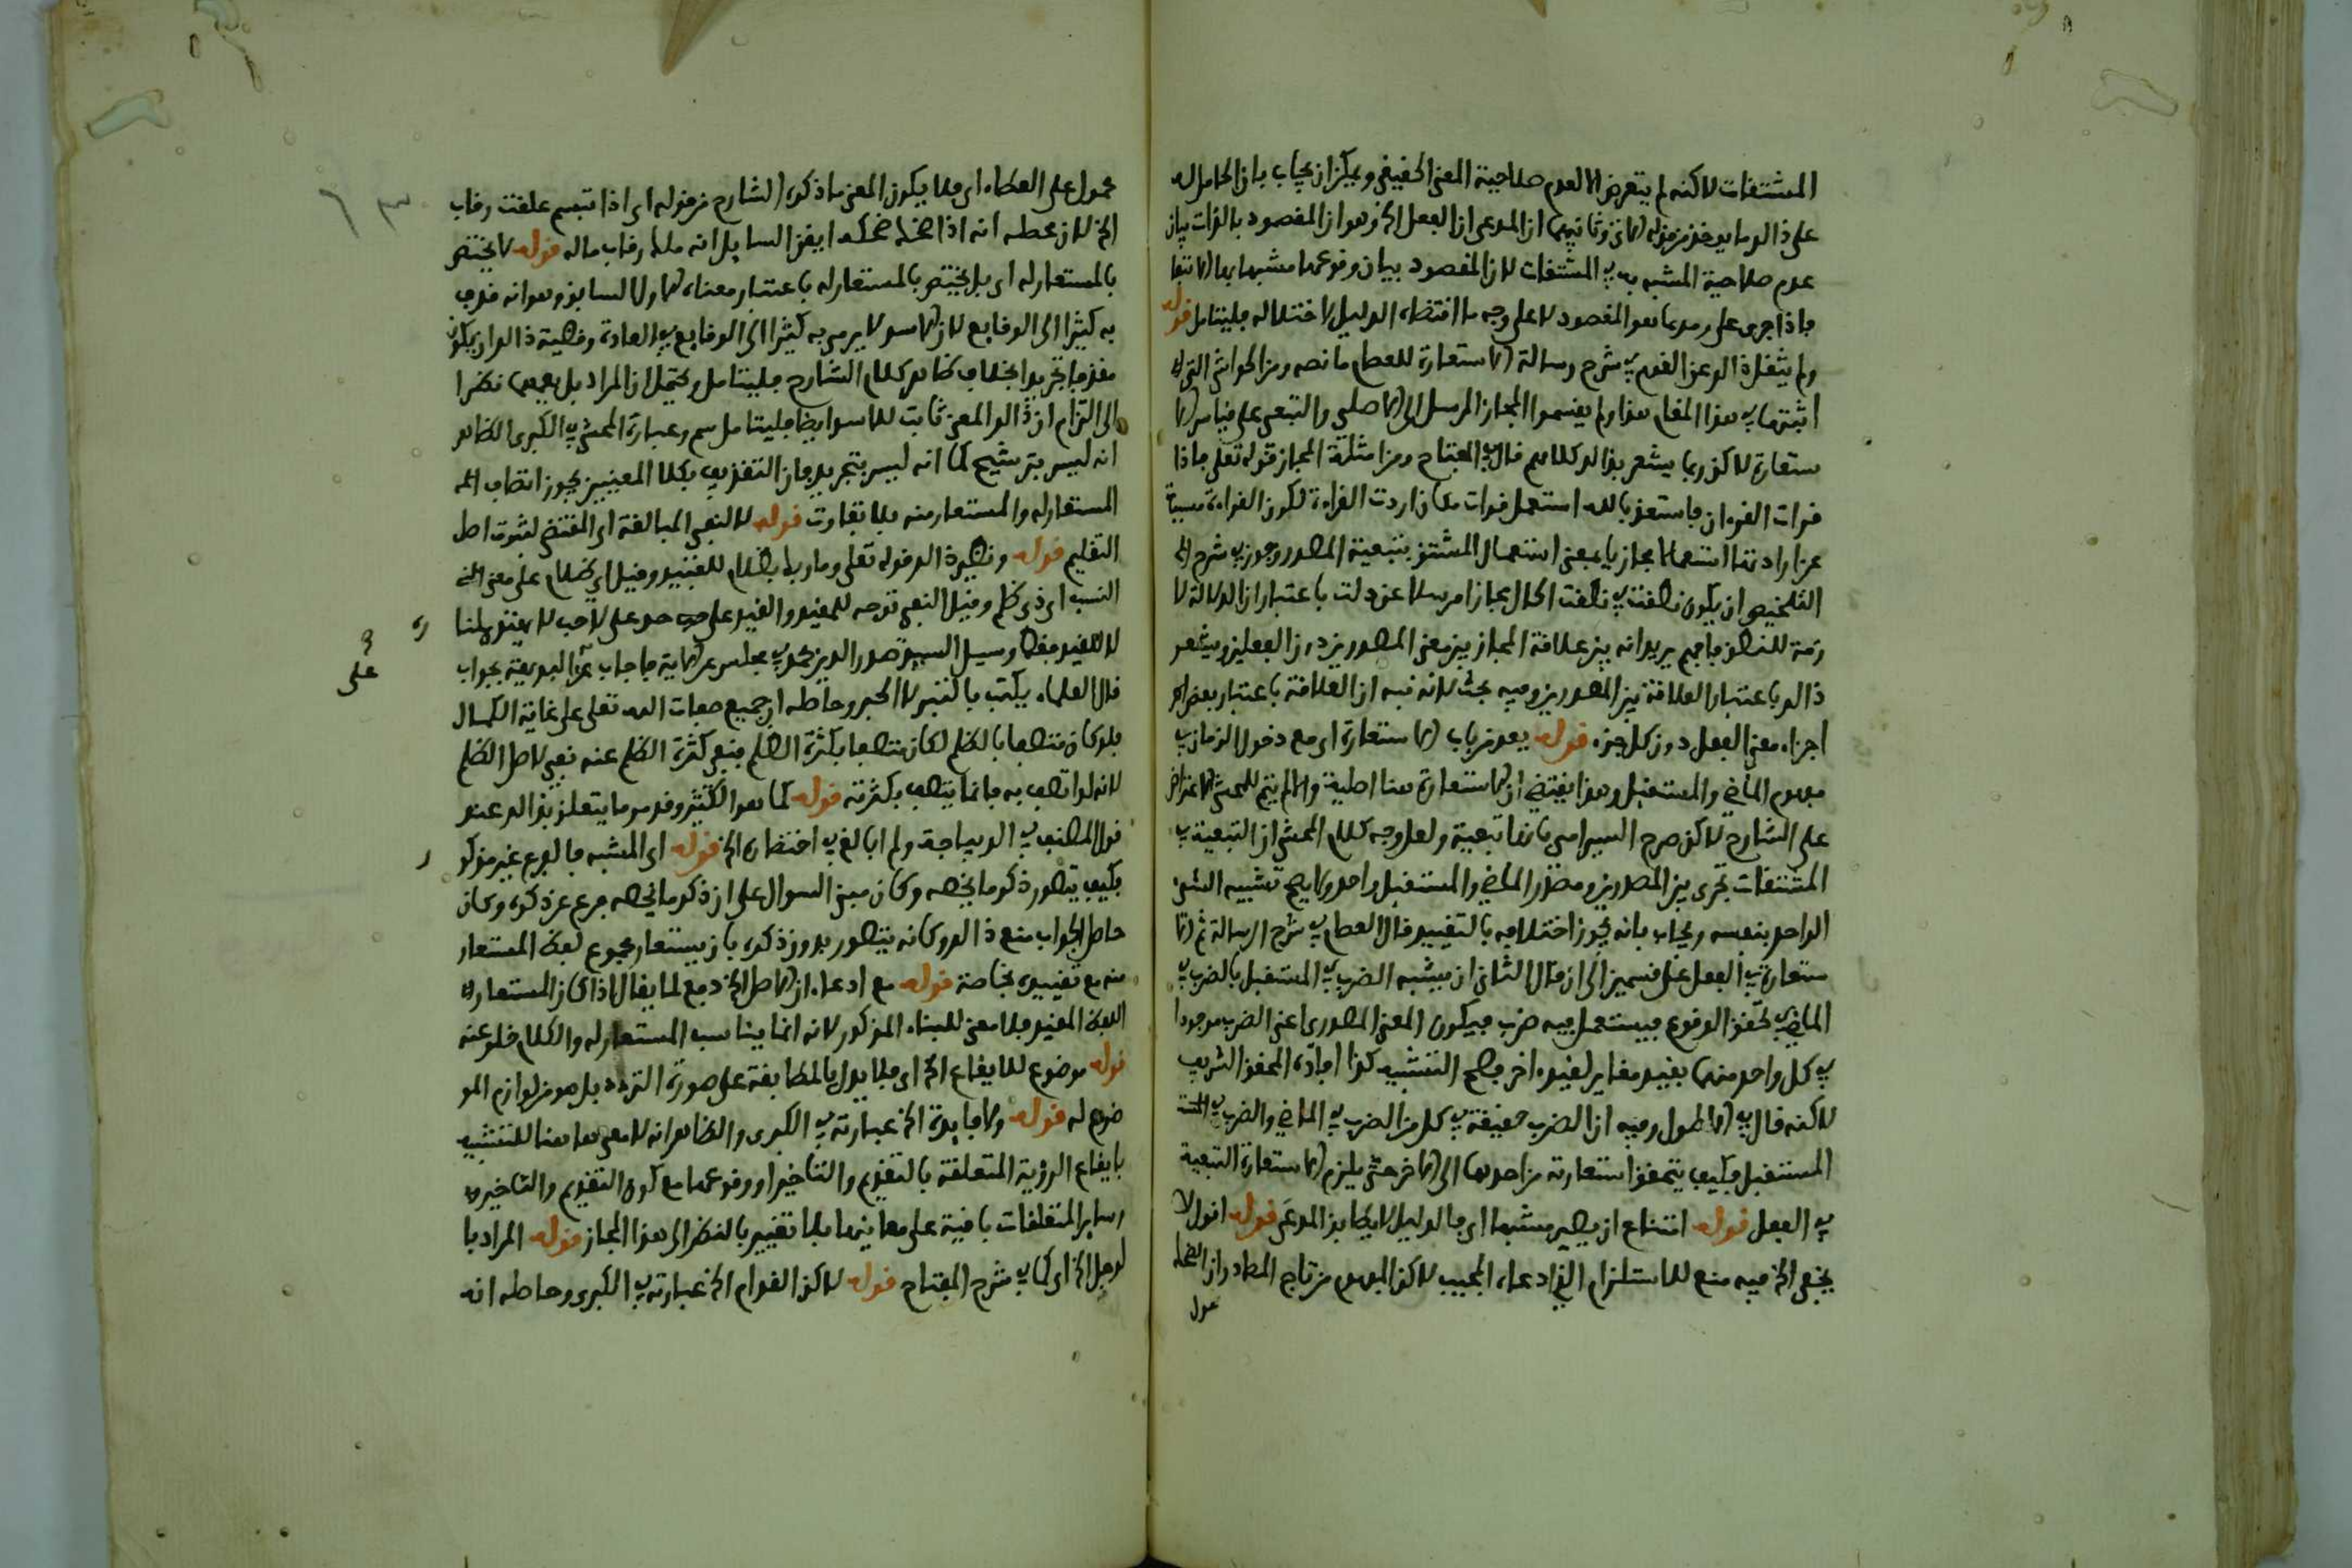 المشتقات لاكنه لم يتعرض الا لعدم صلاحية المعنى الحقيقي ويمكن ان يجاب بان الحامل له
على ذالك ما يوخذ من قوله ان المدعى ان الفعل الخ وهو ان المقصود بالذات بيان
عدم صلاحية المشبه به في المشتقات لان المقصود بيان وقوعها مشبها بها
فاذا جرى على هو المقصود لا على وجه ما اقتضاه الدليل لاختلاله فليتامل قوله
ولم ينقل ذالك عن القوم في شرح رسالة الاستعارة للعصام ما نصه ومن الحواشي التي
اثبتها في هذا المقام هذا ولم يقسموا المجاز المرسل الى الاصلي والتبعي على قياس الا
ستعارة لاكن ربما يشعر بذالك كلامهم قال في المفتاح ومن امثلة المجاز قوله تعلى فاذا
قرات القرءان فاستعذ بالله استعمل قرات مكان اردت القراءة لكون القراءة مسببة
عن ارادتها استعمالا مجازيا يعني استعمال المشتق بتبعية المصدر وجوز في شرح
التلخيص ان يكون نطقت في نطقت الحال مجازا مرسلا عن دلت باعتبار ان الدلالة لا
زمة للنطق فافهم يريد انه بين علاقة المجاز بين معنى المصدرين دون الفعلين ويشعر
ذالك باعتبار العلاقة بين المصدرين وفيه بحث لانه نبه ان العلاقة باعتبار بعض
اجزاء معنى الفعل دون كل جزء قوله يعد من باب الاستعارة اي مع دخول الزمان في
مفهوم الماضي والمستقبل وهذا يقتضي ان الاستعارة هنا اصلية والا لم يتم للمحشي الاعتراض
على الشارح لاكن صرح السيرامي بانها تبعية ولعل وجه كلام المحشي ان التبعية في
المشتقات تجرى بين المصدرين ومصدر الماضي والمستقبل واحد ولا يصح تشبيه الشيء
الواحد بنفسه ويجاب بانه يجوز اختلافه بالتقييد قال العصام في شرح الرسالة ثم الا
ستعارة في الفعل على قسمين الى ان قال الثاني ان يشبه الضرب في المستقبل بالضرب في
الماضي في تحقق الوقوع فيستعمل فيه ضرب فيكون المعنى المصدري اعني الضرب موجودا
في كل واحد منهما بقيد مغاير لقيد اخر فصح التشبيه كذا افاده المحقق الشريف
لاكنه قال في الاطول وفيه ان الضرب حقيقة في كل من الضرب في الماضي والضرب في
المستقبل فكيف يتحقق استعارته من احدهما الى الاخر حتى يلزم الاستعارة التبعية
في الفعل قوله امتناع ان يصير مشبها اي فالدليل لا يطابق المدعى قوله اقول لا
يخفى الخ فيه منع للاستلزام الذي ادعاه المجيب لاكن المفهوم من تاج المصادر ان
محمول على العطاء اي فلا يكون المعنى ما ذكره الشارح من قوله اي اذا تبسم غلقت رقاب
الخ لان محطه انه اذا ضحك ضحكه ايقن السايل انه ملك رقاب ماله قوله لا يختص
بالمستعار له اي بل يختص بالمستعار له باعتبار معناه الاول السابق وهو انه قذف
به كثيرا الى الوقايع لان الاسد لا يرمي به كثيرا الى الوقايع في العادة وقضية ذالك ان يكون
مقذفا تجريدا بخلاف ظاهر كلام الشارح فليتامل ويحتمل ان المراد بل يعمهما نظرا
الى التزام ان ذالك المعنى ثابت للاسد ايضا فليتامل سم وعبارة المحشي في الكبرى الظاهر
انه ليس بترشيح كما انه ليس بتجريد فان التقذيف بكلا المعنيين يجوز اتصاف
المستعار له والمستعار منه بلا تفاوت قوله لا لنفي المبالغة اي المقتضى لثبوت اصل
التقليم قوله ونظيره قوله تعلى وما ربك بظلام للعبيد وقيل اي ظلام على معنى
النسب اي ذي ظلم وقيل النفي توجه للمقيد والقيد على حد على لاحب لا يهتدى لمنا
ره
لا للقيد فقط وسيل السيد صدر الدين في مجلس عن الاية فاجاب بجواب
على
قال العلماء يكتب بالتبر لا الحبر وحاصله ان جميع صفات الله تعلى على غاية الكمال
فلو كان متصفا بالظلم لكان متصفا بكثرة الظلم فنفي كثرة الظلم عنه نفي لاصل الظلم
لانه لو اتصف به فانما يتصف بكثرته قوله كما هو الكثير وقد مر ما يتعلق بذالك عند
قول المصنف في الديباجة ولم ابالغ في اختصاره الخ قوله اي المشبه فالفرع غير مذكو
ر
فكيف يتصور ذكر ما يخصه وكان مبنى السوال على ان ذكر ما يخصه فرع عن ذكره وكان
حاصل الجواب منع ذالك وكانه يتصور بدون ذكره بان يستعار مجموع لفظ المستعار
منه مع تقييده بخاصة قوله مع ادعاء ان الاصل الخ دفع لما يقال اذا كان المستعار
اللفظ المقيد فلا معنى للبناء المذكور لانه انما يناسب المستعار له والكلام خلو عنه
قوله موضوع للايقاع الخ اي فلا يدل بالمطابقة على صورة التردد بل هو من لوازم المو
ضوع له قوله ولا فايدة الخ عبارته في الكبرى والظاهر انه لا معنى هاهنا للتشبيه
بايقاع الرؤية المتعلقة بالتقديم والتاخير او وقوعها مع كون التقديم والتاخير
وساير المتعلقات باقية على معانيها بلا تغيير بالنظر الى هذا المجاز قوله المراد با
لرجل الخ اي كما في شرح المفتاح قوله لاكن القوام الخ عبارته في الكبرى وحاصله انه